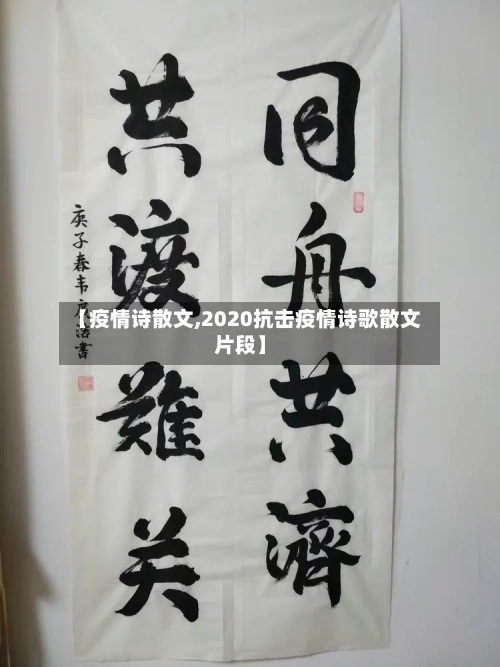 同舟共濟
共渡難关
庚子春韦
書
【疫情诗散文,2020抗击疫情诗歌散文
片段】